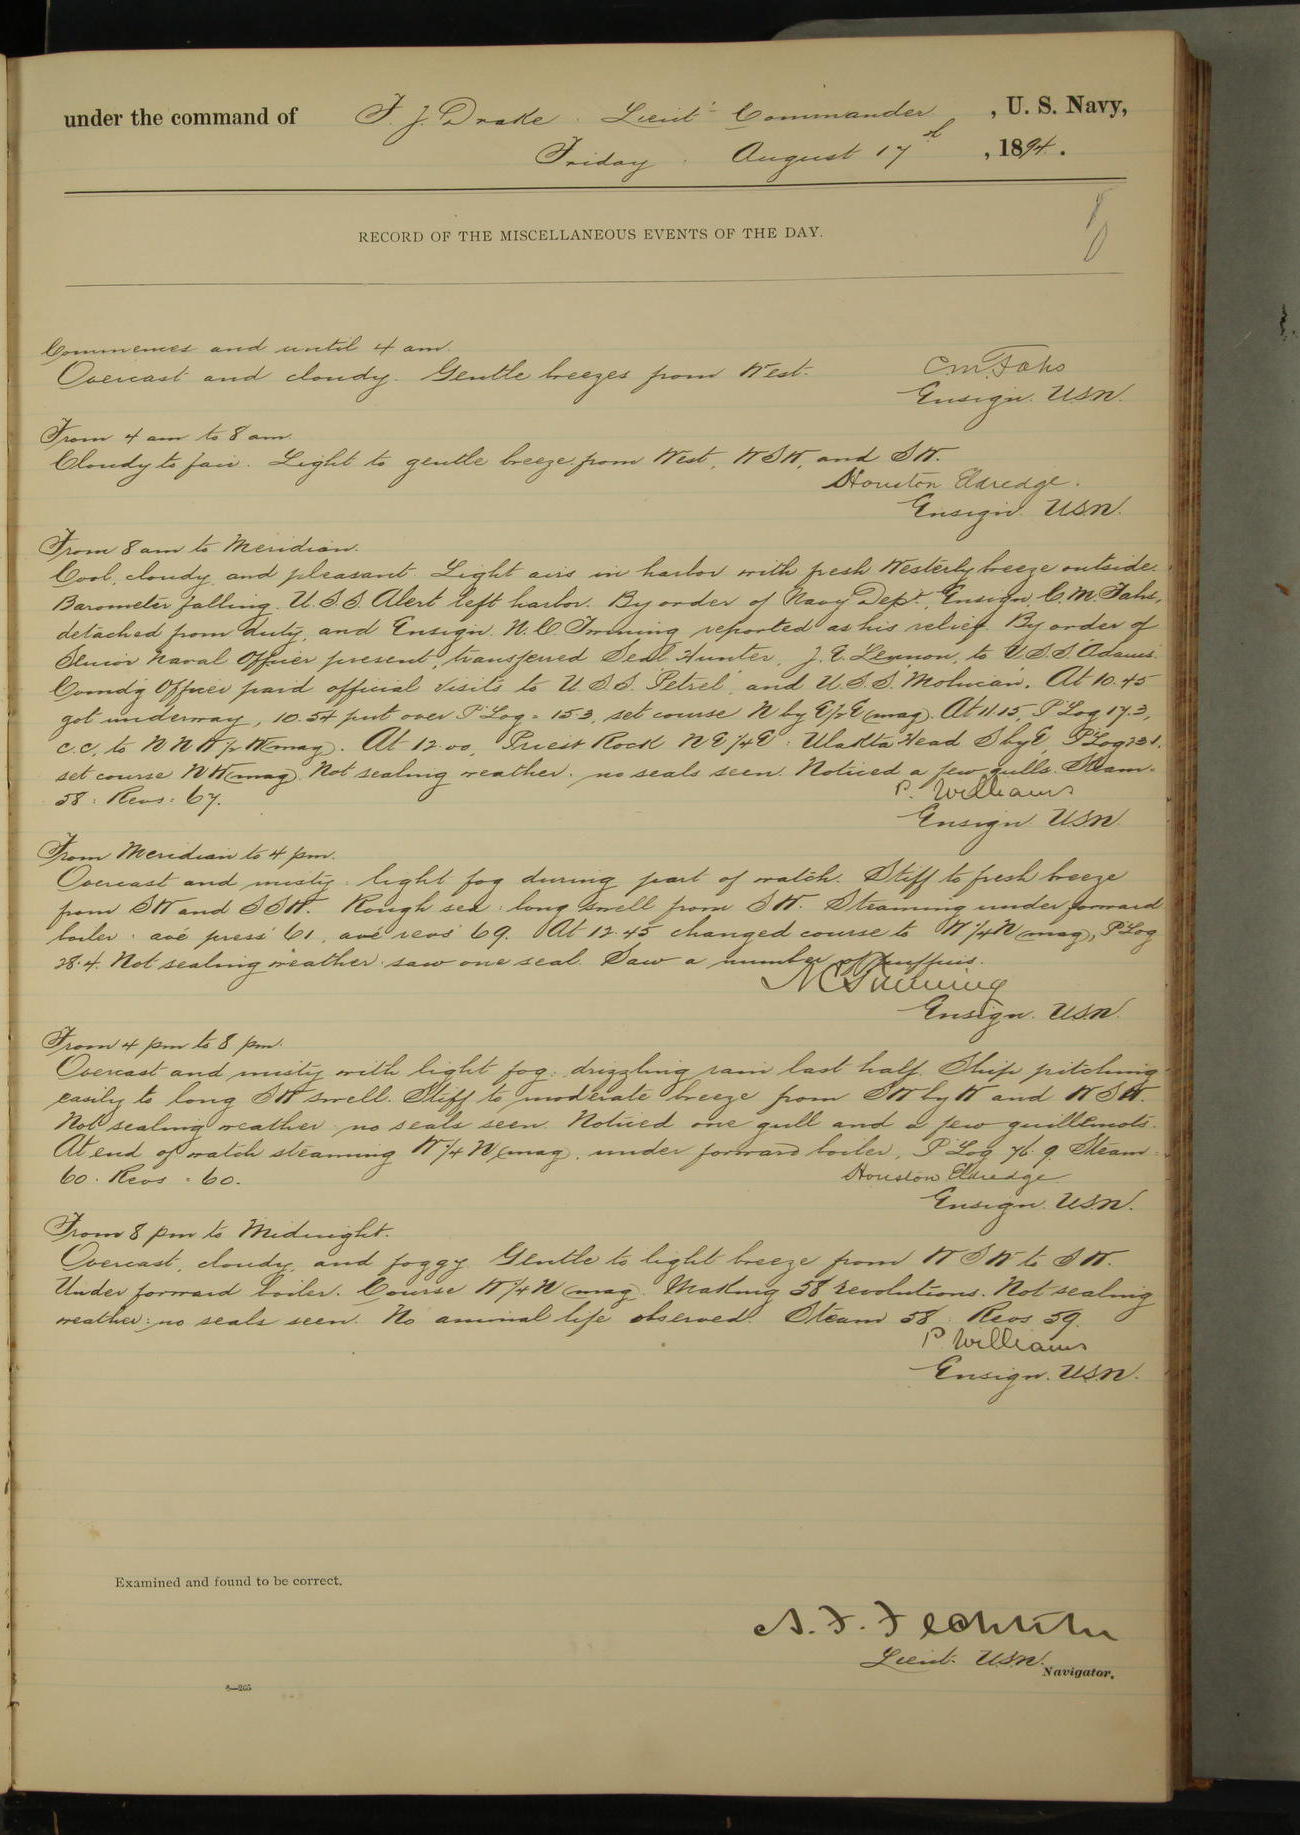 under the command of F. J. Drake. Lieut. Commander, U. S. Navy,
Friday. August 17th, 1894.
RECORD OF THE MISCELLANEOUS EVENTS OF THE DAY.
Commences and until 4 am.
Overcast and cloudy. Gentle breezes from West.
C.M. Fahs
Ensign. U.S.N.
From 4 am to 8 am.
Cloudy to fair. Light to gentle breeze from West, WSW, and SW.
Houston Eldredge.
Ensign. U.S.N.
From 8 am to Meridian.
Cool, cloudy, and pleasant. Light airs in harbor with fresh Westerly breeze outside.
Barometer falling. U.S.S. Alert left harbor. By order of Navy Dept., Ensign C. M. Fahs,
detached from duty, and Ensign. N. C. Twining reported as his relief. By order of
Senior Naval Officer present, transferred Seal Hunter, J. E. Lennon, to U.S.S. Adams.
Comd'g Officer paid official visits to U.S.S. "Petrel", and U.S.S. "Mohican". At 10.45
got underway, 10.54 put over P. Log = 15.3, set course N by E 1/2 E (mag). At 11.15, P. Log 17.3,
c.c. to NNW 1/2 W (mag). At 12.00, Priest Rock NE 1/4 E: Ulakta Head S by E, P. Log 23.1.
set course NW (mag). Not sealing weather. no seals seen. Noticed a few gulls. Steam =
58: Revs: 67.
P. Williams
Ensign U.S.N.
From Meridian to 4 pm.
Overcast and misty: light fog during part of watch. Stiff to fresh breeze
from SW and SSW. Rough sea: long swell from SW. Steaming under forward
boiler. ave press' 61, ave revs' 69. At 12.45 changed course to W 1/4 N (mag), P. Log
28.4. Not sealing weather. saw one seal. Saw a number of puffins.
N C Twining
Ensign. U.S.N.
From 4 pm to 8 pm.
Overcast and misty with light fog: drizzling rain last half. Ship pitching
easily to long SW swell. Stiff to moderate breeze from SW by W and WSW.
Not sealing weather no seals seen. Noticed one gull and a few guillemots.
At end of watch steaming W 1/4 N (mag). under forward boiler, P. Log 76.9. Steam =
60. Revs = 60.
Houston Eldredge
Ensign U.S.N.
From 8 pm to Midnight.
Overcast, cloudy, and foggy. Gentle to light breeze from WSW to SW.
Under forward boiler. Course W 1/4 N (mag). Making 58 revolutions. Not sealing
weather: no seals seen. No animal life observed. Steam 58. Revs 59.
P. Williams
Ensign. U.S.N.
Examined and found to be correct.
A. F. Fechteler
Lieut. U.S.N.
Navigator.